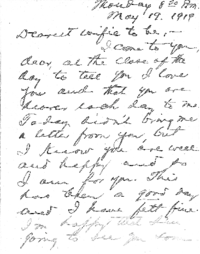 Monday 8:30 Pm.
May 19, 1919
Dearest wifie to be,—
I come to you,
dear, at the close of the
day to tell you I love
you and that you are
dearer each day to me.
Today didn't bring me
a letter from you, but
I know you are well
and happy and so
I am for you. This
has been a good day
and I have felt fine.
I'm happy
going to see you